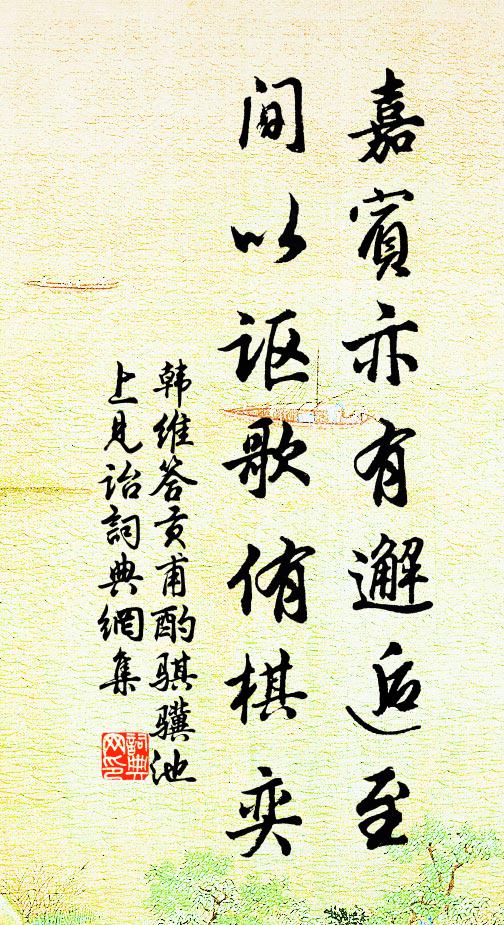 嘉賓亦有邂逅至
间以讴歌侑棋奕
韩维答贡甫酌骐骥池
上见诒詞典網集
詞典网印